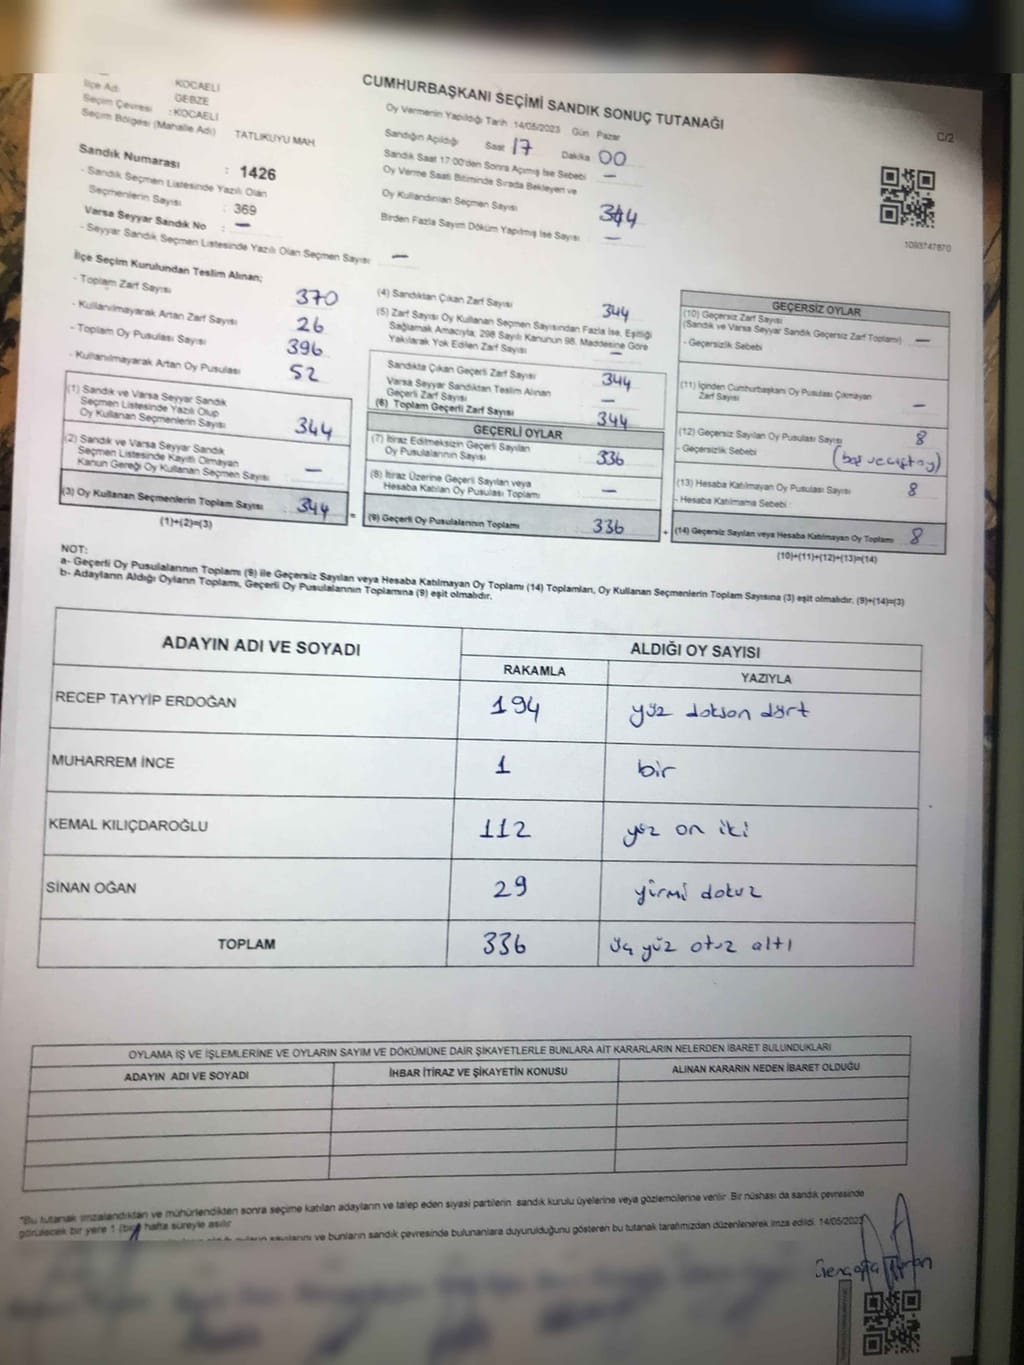 CUMHURBAŞKANI SEÇİMİ SANDIK SONUÇ TUTANAĞI
C/2
KOCAELİ
İlçe Adı : GEBZE
Seçim Çevresi : KOCAELİ
Seçim Bölgesi (Mahalle Adı) TATLIKUYU MAH.
Sandık Numarası : 1426
- Sandık Seçmen Listesinde Yazılı Olan
Seçmenlerin Sayısı : 369
Varsa Seyyar Sandık No : —
- Seyyar Sandık Seçmen Listesinde Yazılı Olan Seçmen Sayısı —
Oy Vermenin Yapıldığı Tarih :14/05/2023 Gün Pazar
Sandığın Açıldığı Saat 17 Dakika 00
Sandık Saat 17:00'den Sonra Açımış İse Sebebi —
Oy Verme Saati Bitiminde Sırada Bekleyen ve
Oy Kullandırılan Seçmen Sayısı 344
Birden Fazla Sayım Döküm Yapılmış İse Sayısı —
1093747870
İlçe Seçim Kurulundan Teslim Alınan;
- Toplam Zarf Sayısı 370
- Kullanılmayarak Artan Zarf Sayısı 26
- Toplam Oy Pusulası Sayısı 396
- Kullanılmayarak Artan Oy Pusulası 52
(1) Sandık ve Varsa Seyyar Sandık
Seçmen Listesinde Yazılı Olup
Oy Kullanan Seçmenlerin Sayısı : 344
(2) Sandık ve Varsa Seyyar Sandık
Seçmen Listesinde Kayıtlı Olmayan
Kanun Gereği Oy Kullanan Seçmen Sayısı : —
(3) Oy Kullanan Seçmenlerin Toplam Sayısı : 344
(1)+(2)=(3)
(4) Sandıktan Çıkan Zarf Sayısı 344
(5) Zarf Sayısı Oy Kullanan Seçmen Sayısından Fazla İse, Eşitliği
Sağlamak Amacıyla; 298 Sayılı Kanunun 98. Maddesine Göre
Yakılarak Yok Edilen Zarf Sayısı —
Sandıkta Çıkan Geçerli Zarf Sayısı 344
Varsa Seyyar Sandıktan Teslim Alınan
Geçerli Zarf Sayısı —
(6) Toplam Geçerli Zarf Sayısı 344
GEÇERLİ OYLAR
(7) İtiraz Edilmeksizin Geçerli Sayılan
Oy Pusulalarının Sayısı : 336
(8) İtiraz Üzerine Geçerli Sayılan veya
Hesaba Katılan Oy Pusulası Toplamı : —
= (9) Geçerli Oy Pusulalarının Toplamı : 336
GEÇERSİZ OYLAR
(10) Geçersiz Zarf Sayısı
(Sandık ve Varsa Seyyar Sandık Geçersiz Zarf Toplamı) —
- Geçersizlik Sebebi
(11) İçinden Cumhurbaşkanı Oy Pusulası Çıkmayan
Zarf Sayısı —
(12) Geçersiz Sayılan Oy Pusulası Sayısı 8
- Geçersizlik Sebebi : (boş ve çift oy)
(13) Hesaba Katılmayan Oy Pusulası Sayısı 8
- Hesaba Katılmama Sebebi :
+ (14) Geçersiz Sayılan veya Hesaba Katılmayan Oy Toplamı 8
(10)+(11)+(12)+(13)=(14)
NOT:
a- Geçerli Oy Pusulalarının Toplamı (9) ile Geçersiz Sayılan veya Hesaba Katılmayan Oy Toplamı (14) Toplamları, Oy Kullanan Seçmenlerin Toplam Sayısına (3) eşit olmalıdır. (9)+(14)=(3)
b- Adayların Aldığı Oyların Toplamı, Geçerli Oy Pusulalarının Toplamına (9) eşit olmalıdır.
ADAYIN ADI VE SOYADI ALDIĞI OY SAYISI
RAKAMLA YAZIYLA
RECEP TAYYİP ERDOĞAN 194 yüz dokson dört
MUHARREM İNCE 1 bir
KEMAL KILIÇDAROĞLU 112 yüz on iki
SİNAN OĞAN 29 yirmi dokuz
TOPLAM 336 üç yüz otuz altı
OYLAMA İŞ VE İŞLEMLERİNE VE OYLARIN SAYIM VE DÖKÜMÜNE DAİR ŞİKAYETLERLE BUNLARA AİT KARARLARIN NELERDEN İBARET BULUNDUKLARI
ADAYIN ADI VE SOYADI İHBAR İTİRAZ VE ŞİKAYETİN KONUSU ALINAN KARARIN NEDEN İBARET OLDUĞU
"Bu tutanak imzalandıktan ve mühürlendikten sonra seçime katılan adayların ve talep eden siyasi partilerin sandık kurulu üyelerine veya gözlemcilerine verilir. Bir nüshası da sandık çevresinde
görülecek bir yere 1 (bir) hafta süreyle asılır.
sayılarını ve bunların sandık çevresinde bulunanlara duyurulduğunu gösteren bu tutanak tarafımızdan düzenlenerek imza edildi. 14/05/2023